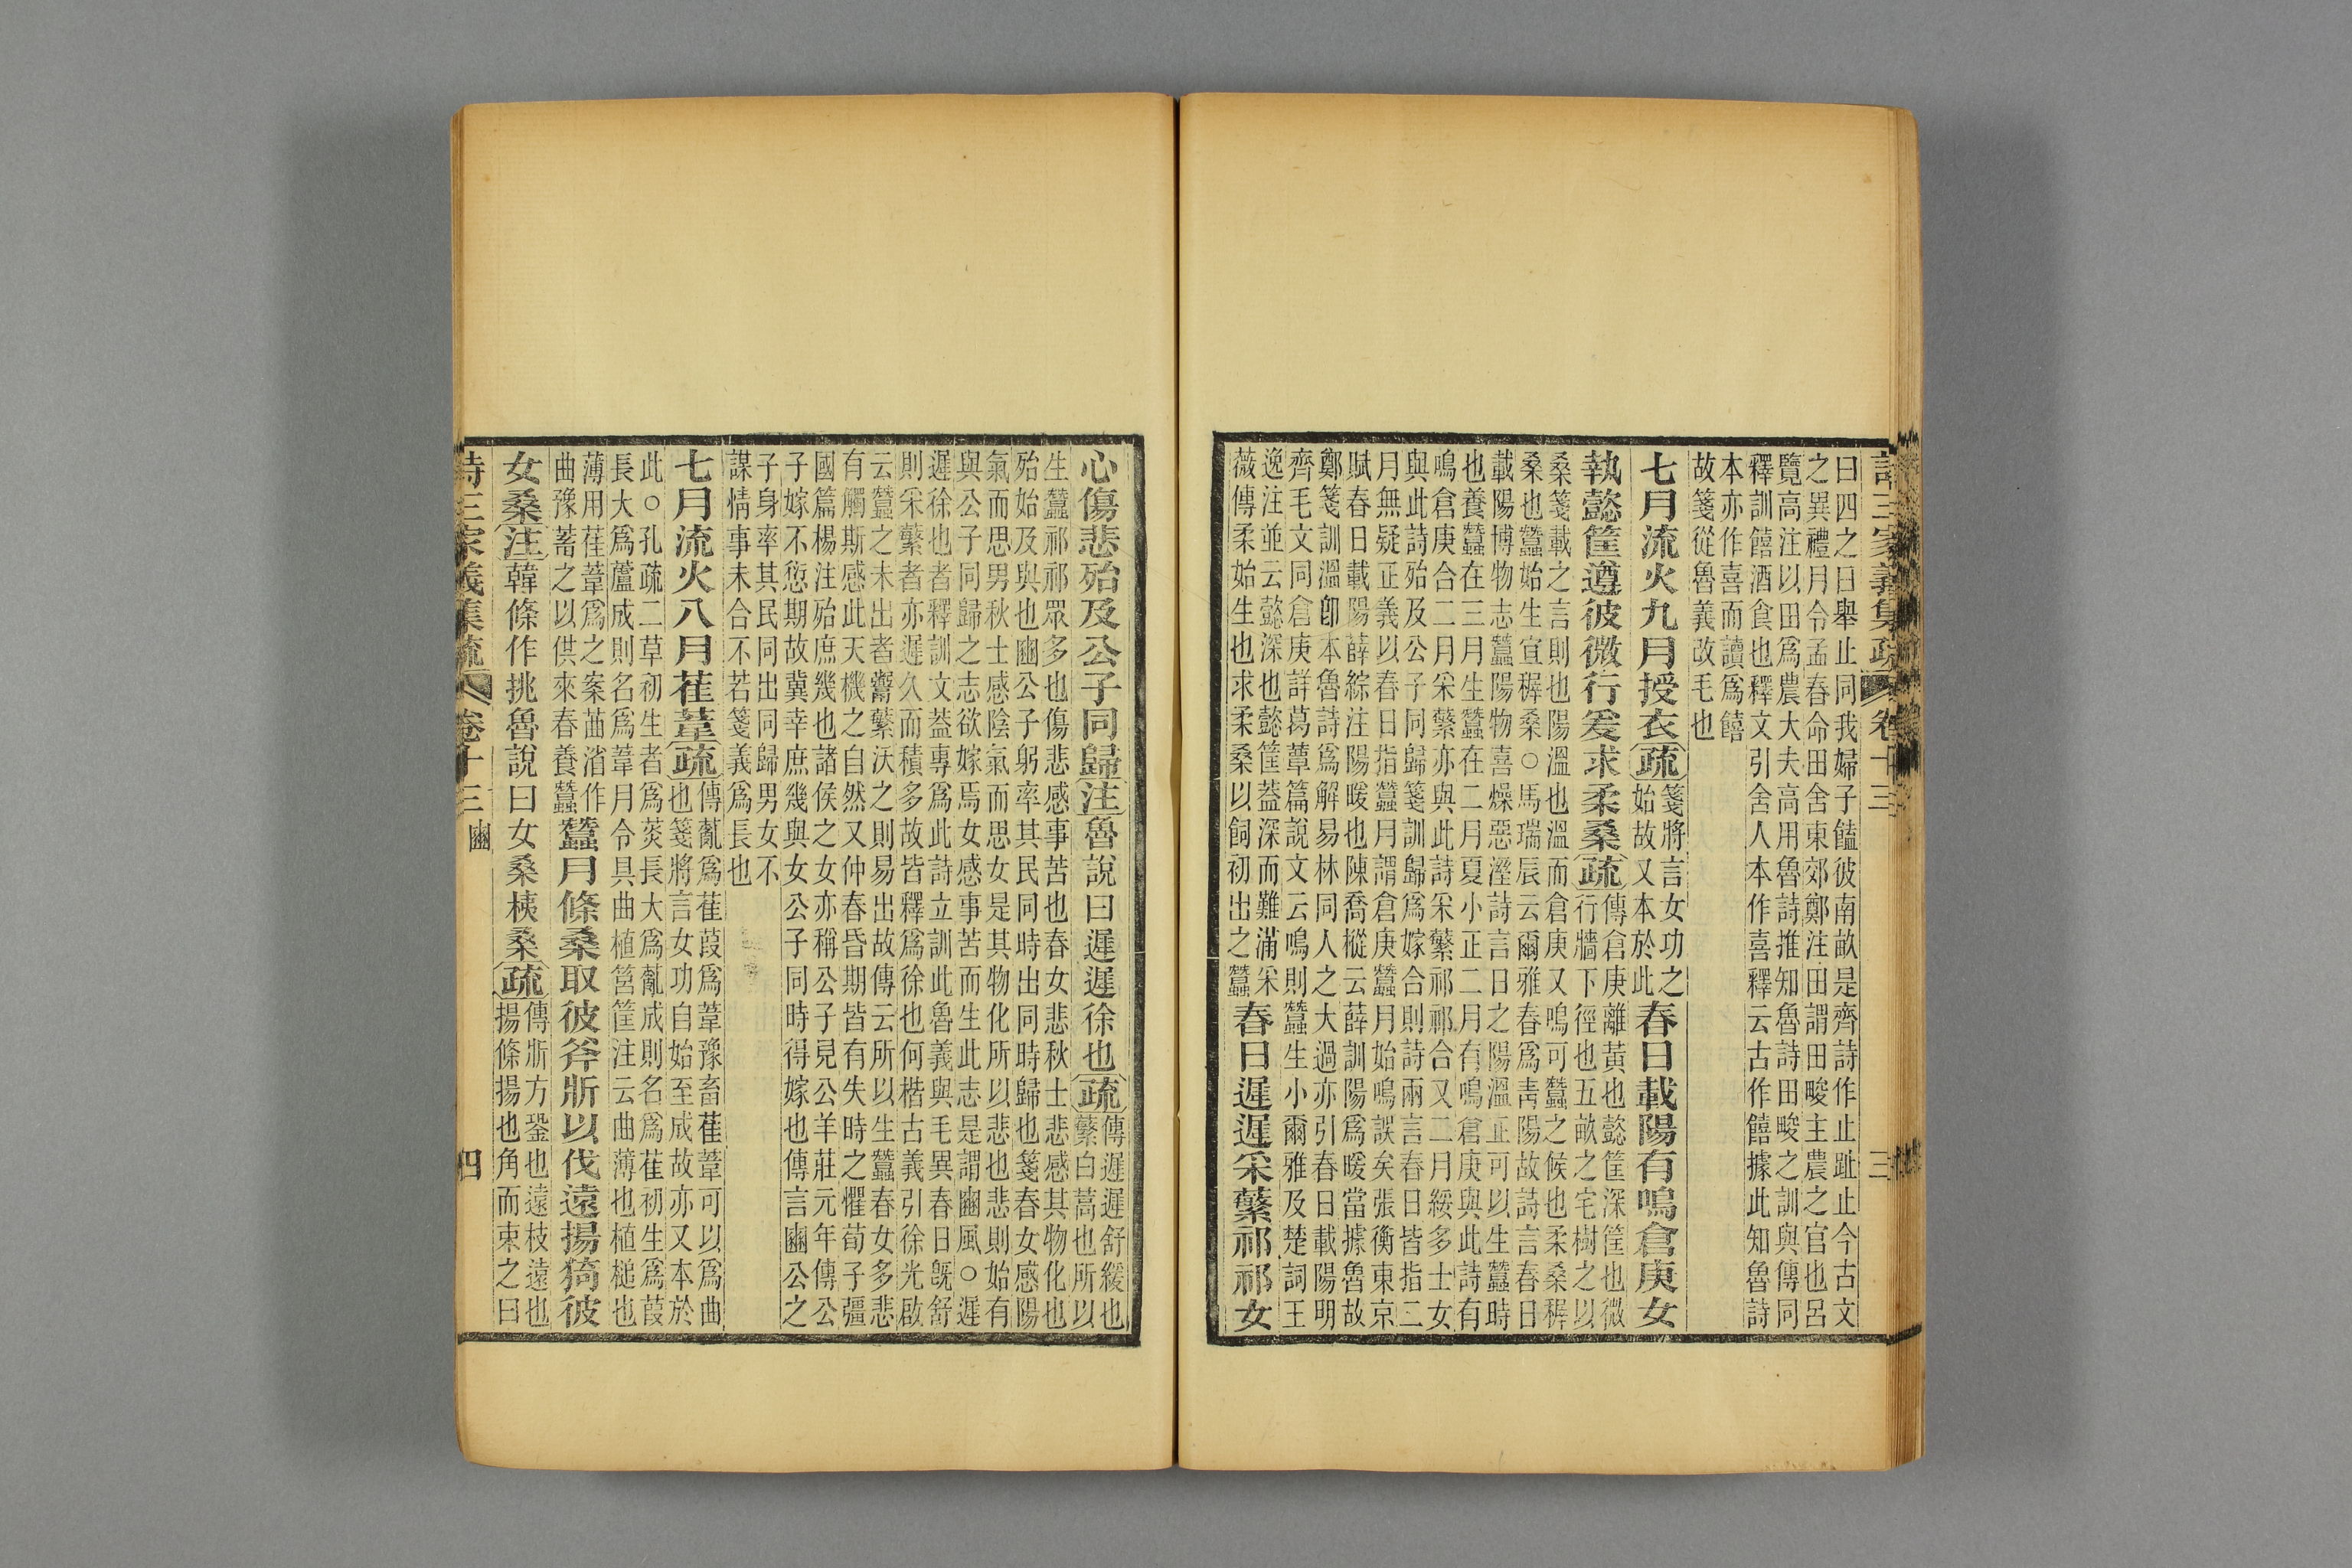 詩三家義集疏 卷十三 三
曰四之日舉止同我婦子饁彼南畝是齊詩作止趾止今古文
之異禮月令孟春命田舍東郊鄭注田謂田畯主農之官也呂
覽高注以田爲農大夫高用魯詩推知魯詩田畯之訓與傳同
釋訓饎酒食也釋文引舍人本作喜釋云古作饎據此知魯詩
本亦作喜而讀爲饎
故箋從魯義改毛也
七月流火九月授衣疏
箋將言女功之
始故又本於此
春日載陽有鳴倉庚女
執懿筐遵彼微行爰求柔桑疏
傳倉庚離黃也懿筐深筐也微
行牆下徑也五畝之宅樹之以
桑箋載之言則也陽溫也溫而倉庚又鳴可蠶之候也柔桑穉
桑也蠶始生宜穉桑○馬瑞辰云爾雅春爲靑陽故詩言春日
載陽博物志蠶陽物喜燥惡溼詩言日之陽溫正可以生蠶時
也養蠶在三月生蠶在二月夏小正二月有鳴倉庚與此詩有
鳴倉庚合二月采蘩亦與此詩采蘩祁祁合又二月綏多士女
與此詩殆及公子同歸箋訓歸爲嫁合則詩兩言春日皆指二
月無疑正義以春日指蠶月謂倉庚蠶月始鳴誤矣張衡東京
賦春日載陽薛綜注陽暖也陳喬樅云薛訓陽爲暖當據魯故
鄭箋訓溫卽本魯詩爲解易林同人之大過亦引春日載陽明
齊毛文同倉庚詳葛蕈篇說文云鳴則蠶生小爾雅及楚詞王
逸注並云懿深也懿筐蓋深而難滿采
薇傳柔始生也求柔桑以飼初出之蠶
春日遲遲采蘩祁祁女
心傷悲殆及公子同歸注魯說曰遲遲徐也疏
傳遲遲舒緩也
蘩白蒿也所以
生蠶祁祁眾多也傷悲感事苦也春女悲秋士悲感其物化也
殆始及與也豳公子躬率其民同時出同時歸也箋春女感陽
氣而思男秋士感陰氣而思女是其物化所以悲也悲則始有
與公子同歸之志欲嫁焉女感事苦而生此志是謂豳風○遲
遲徐也者釋訓文蓋專爲此詩立訓此魯義與毛異春日旣舒
則采蘩者亦遲久而積多故皆釋爲徐也何楷古義引徐光啟
云蠶之未出者鬻蘩沃之則易出故傳云所以生蠶春女多悲
有觸斯感此天機之自然又仲春昏期皆有失時之懼荀子彊
國篇楊注殆庶幾也諸侯之女亦稱公子見公羊莊元年傳公
子嫁不愆期故冀幸庶幾與女公子同時得嫁也傳言豳公之
子身率其民同出同歸男女不
謀情事未合不若箋義爲長也
七月流火八月萑葦疏
傳薍爲萑葭爲葦豫畜萑葦可以爲曲
也箋將言女功自始至成故亦又本於
此○孔疏二草初生者爲菼長大爲薍成則名爲萑初生爲葭
長大爲蘆成則名爲葦月令具曲植筥筐注云曲薄也植槌也
薄用萑葦爲之案苖渻作
曲豫蓄之以供來春養蠶
蠶月條桑取彼斧斨以伐遠揚猗彼
女桑注韓條作挑魯說曰女桑桋桑疏
傳斨方銎也遠枝遠也
揚條揚也角而束之曰
詩三家義集疏 卷十三 豳 四